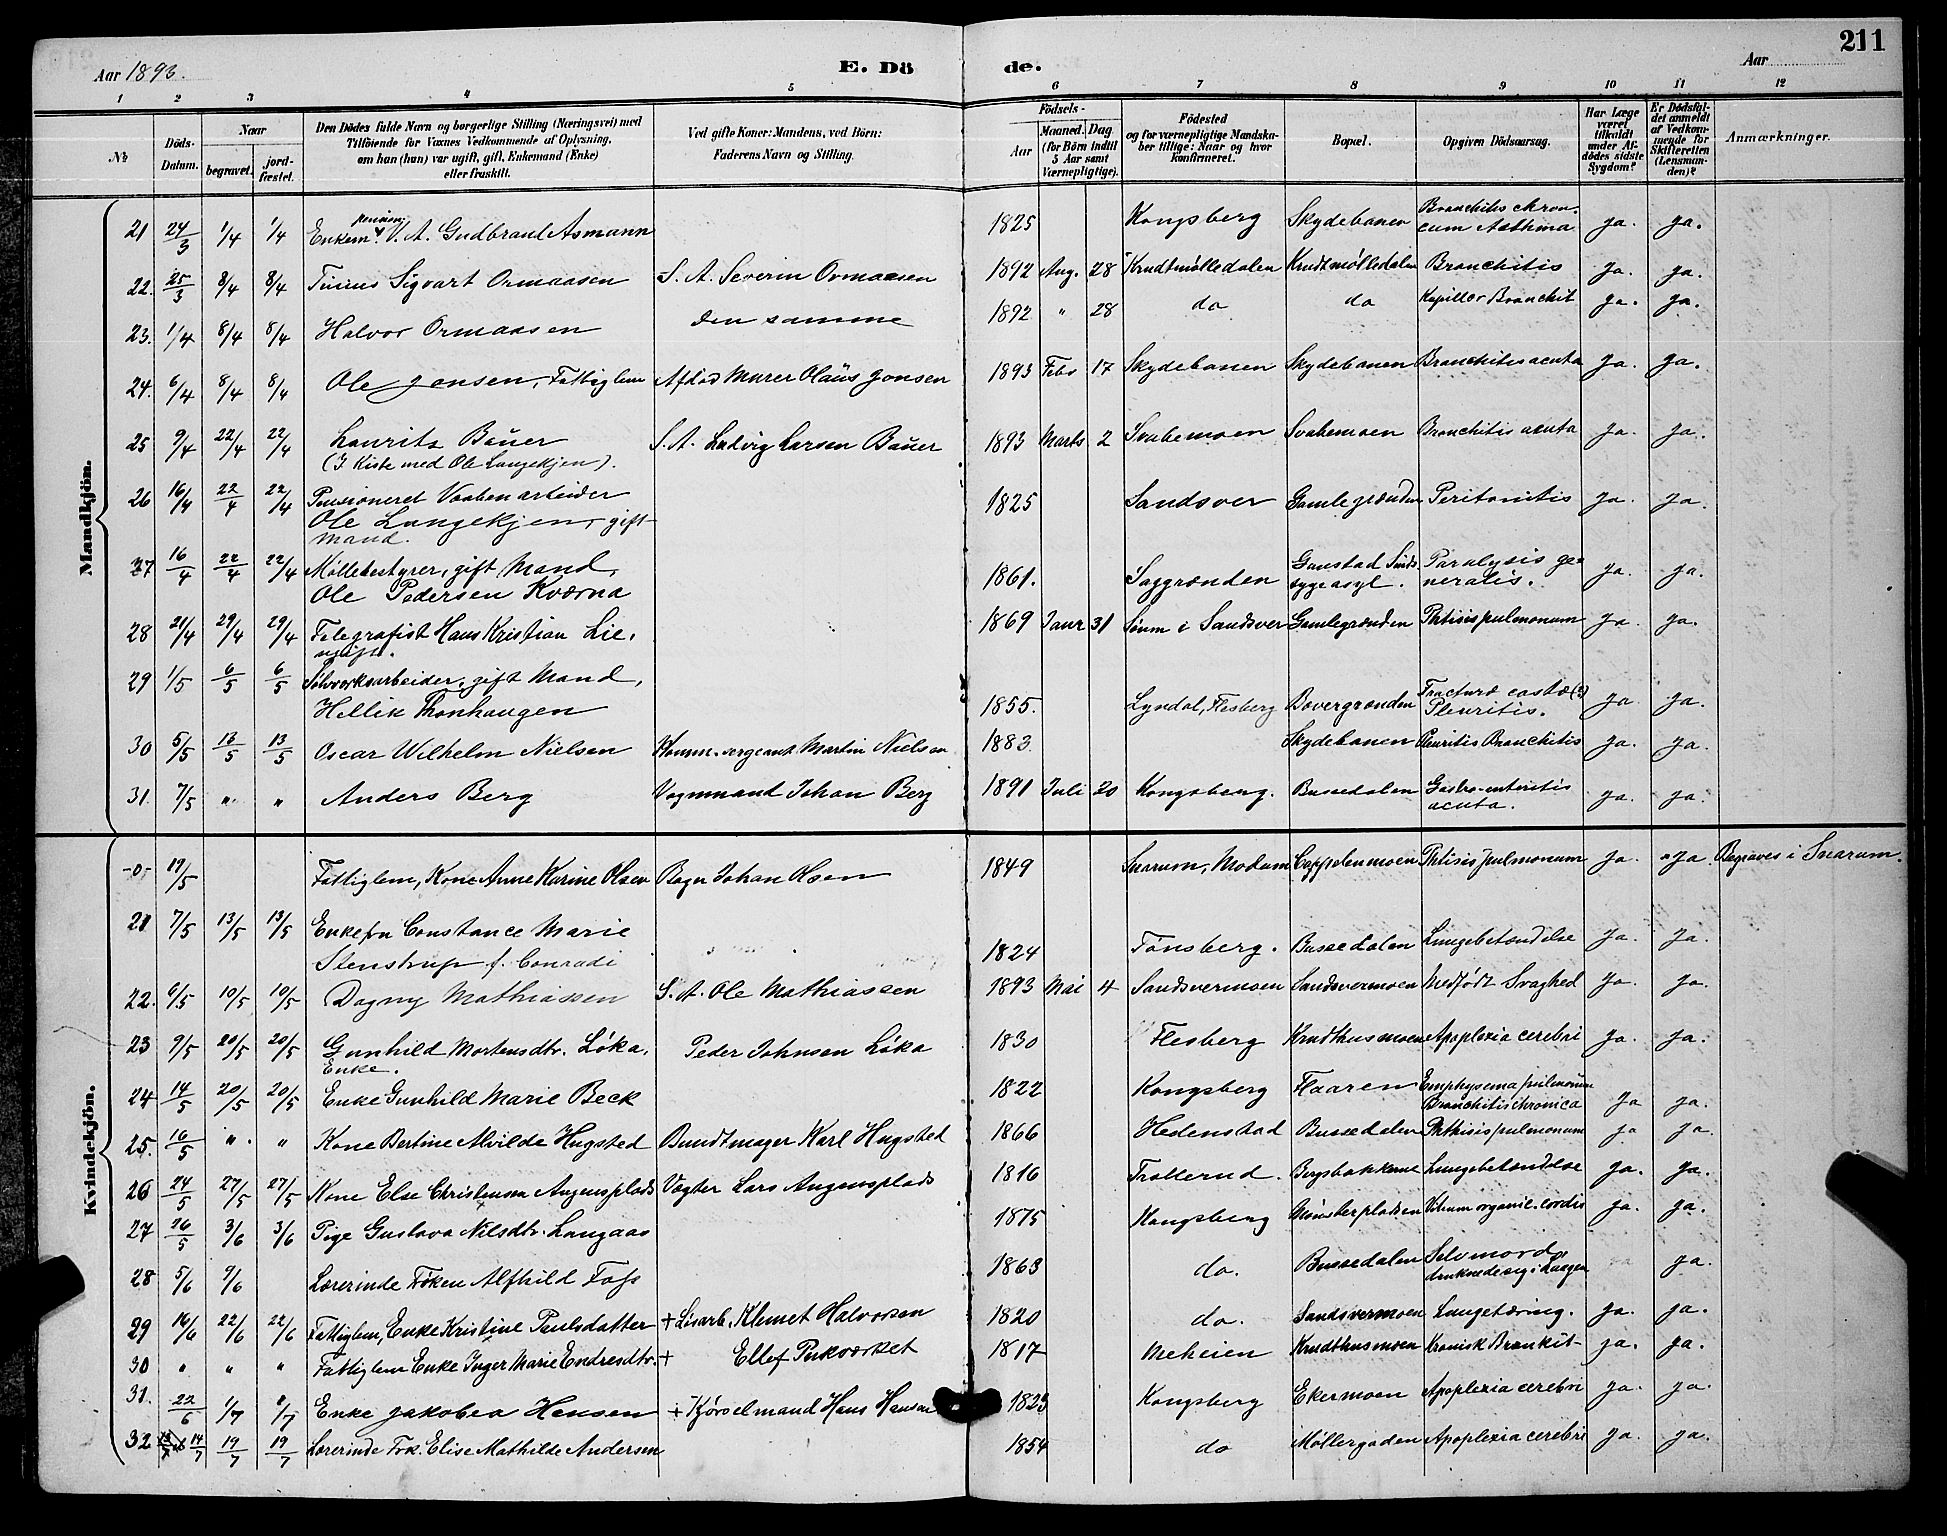 211
Aar 1893.
E. Dö
de.
Aar
1 2 3 4 5 6 7 8 9 10 11 12
No
Döds-Datum.
Naar
begravet.
jord-fæstet.
Den Dödes fulde Navn og borgerlige Stilling (Næringsvei) med
Tilföiende for Voxnes Vedkommende af Oplysning,
om han (hun) var ugift, gift, Enkemand (Enke)
eller fraskilt.
Ved gifte Koner: Mandens, ved Börn:
Faderens Navn og Stilling.
Födsels-
Aar
Maaned. Dag
(for Börn indtil
5 Aar samt
Værnepligtige).
Födested
og for værnepligtige Mandska-
ber tillige: Naar og hvor
konfirmeret.
Bopæl.
Opgiven Dödsaarsag.
Har Læge
været
tilkaldt
under Af-
dödes sidste
Sygdom?
Er Dödsfal-
det anmeldt
af Vedkom-
mende for
Skifteretten
(Lensman-
den)?
Anmærkninger.
Mandkjön.
21 24/3 1/4 1/4 Enkem. pension. V. A. Gudbrant Asmann 1825 Kongsberg Skydebanen Bronchitis chron. cum Asthma ja. ja.
22. 25/3 8/4 8/4 Tinius Sigvart Ormaasen S. A. Severin Ormaasen 1892 Aug. 28 Krudtmølledalen Krudtmølledalen Bronchitis ja. ja.
23. 1/4 8/4 8/4 Halvor Ormaasen den samme 1892 " 28 do do Kapillær Bronchit ja. ja.
24. 6/4 8/4 8/4 Ole Jensen, Fattiglem Afdød Murer Olaüs Jonsen 1893 Febr 17 Skydebanen Skydebanen Bronchitis acuta ja. ja.
25 9/4 22/4 22/4 Laurits Bauer S. A. Ludvig Larsen Bauer 1893 Marts 2 Svabemoen Svabemoen Bronchitis acuta ja. ja.
(I Kiste med Ole Langekjen).
26 16/4 22/4 22/4 Pensioneret Vaabenarbeider 1825 Sandsver Gamlegrænden Peritonitis ja. ja.
Ole Langekjen, gift
mand.
27 16/4 22/4 22/4 Møllebestyrer, gift Mand, 1861. Saggrænden Gaustad Sinds-sygeasyl. Paralysis ge-neralis. ja. ja.
Ole Pedersen Kværna
28 21/4 29/4 29/4 Telegrafist Hans Kristian Lie, 1869 Janr 31 Sørum i Sandsver Gamlegrænden Phtisis pulmonum ja. ja.
ugift.
29 1/5 6/5 6/5 Sølvverksarbeider, gift Mand,
Hellik Thonhaugen 1855. Lyndal, Flesberg Bøvergrenden Fractura costæ (?) Pleuritis. ja. ja.
30 5/5 13/5 13/5 Oscar Wilhelm Nielsen Komm. sergeant Martin Nielsen 1883 Skydebanen Pleuritis Bronchitis ja. ja.
31. 7/5 " " Anders Berg Vognmand Johan Berg 1891 Juli 20 Kongsberg. Bussedalen Gastro-enteritis acuta. ja. ja.
Kvindekjön.
-0- 19/5 Fattiglem, Kone Anne Karine Olsen Bager Johan Olsen 1849 Snarum, Modum Cappelenmoen Phtisis pulmonum ja. ja Begraves i Snarum.
21 7/5 13/5 13/5 Enkefru Constance Marie
Stenstrup f. Conradi 1824 Tønsberg. Bussedalen Lungebetændelse ja. ja.
22. 6/5 10/5 10/5 Dagny Mathiassen S. A. Ole Mathiassen 1893 Mai 4 Sandsvermoen Sandsvermoen Medfødt Svaghed ja. ja.
23 9/5 20/5 20/5 Gunhild Mortensdtr. Løka, Peder Johnsen Løka 1830 Flesberg Krudthusmoen Apoplexia cerebri ja. ja.
Enke.
24 14/5 20/5 20/5 Enke Gunhild Marie Beck 1822 Kongsberg Flaaren Emphysema pulmonum Bronchitis chronica ja ja.
25. 16/5 " " Kone Bertine Alvilde Hugsted Bundtmager Karl Hugsted 1866 Hedenstad Bussedalen Phthisis pulmonum ja ja.
26 24/5 27/5 27/5 Kone Else Christensen Augensplads Vægter Lars Augensplads 1816 Trollerud. Bergsbakkerne Lungebetændelse ja. ja.
27 26/5 3/6 3/6 Pige Gustava Nilsdtr. Langaas 1875 Kongsberg Münsterpladsen Vitium organic. cordis ja. ja.
28 5/6 9/6 Lærerinde Frøken Alfhild Foss 1863 do. Bussedalen Selvmord, druknede sig i Laagen ja.
29 16/6 22/6 22/6 Fattiglem, Enke Kristine Paulsdatter + Løsarb. Klemet Halvorsen 1820 do. Sandsvermoen Lungetæring. ja. ja.
30 " " " Fattiglem Enke Inger Marie Endresdtr. + Ellef Pukværket 1817 Meheien Krudthusmoen Kronisk Bronkit ja. ja.
31. 22/6 1/7 1/7 Enke Jakobea Hansen + Kjørselmand Hans Hansen 1823 Kongsberg Ekermoen Apoplexia cerebri ja. ja.
32 14/7 19/7 19/7 Lærerinde Frk. Elise Mathilde Andersen 1854 do Møllergaden Apoplexia cerebri ja. ja.